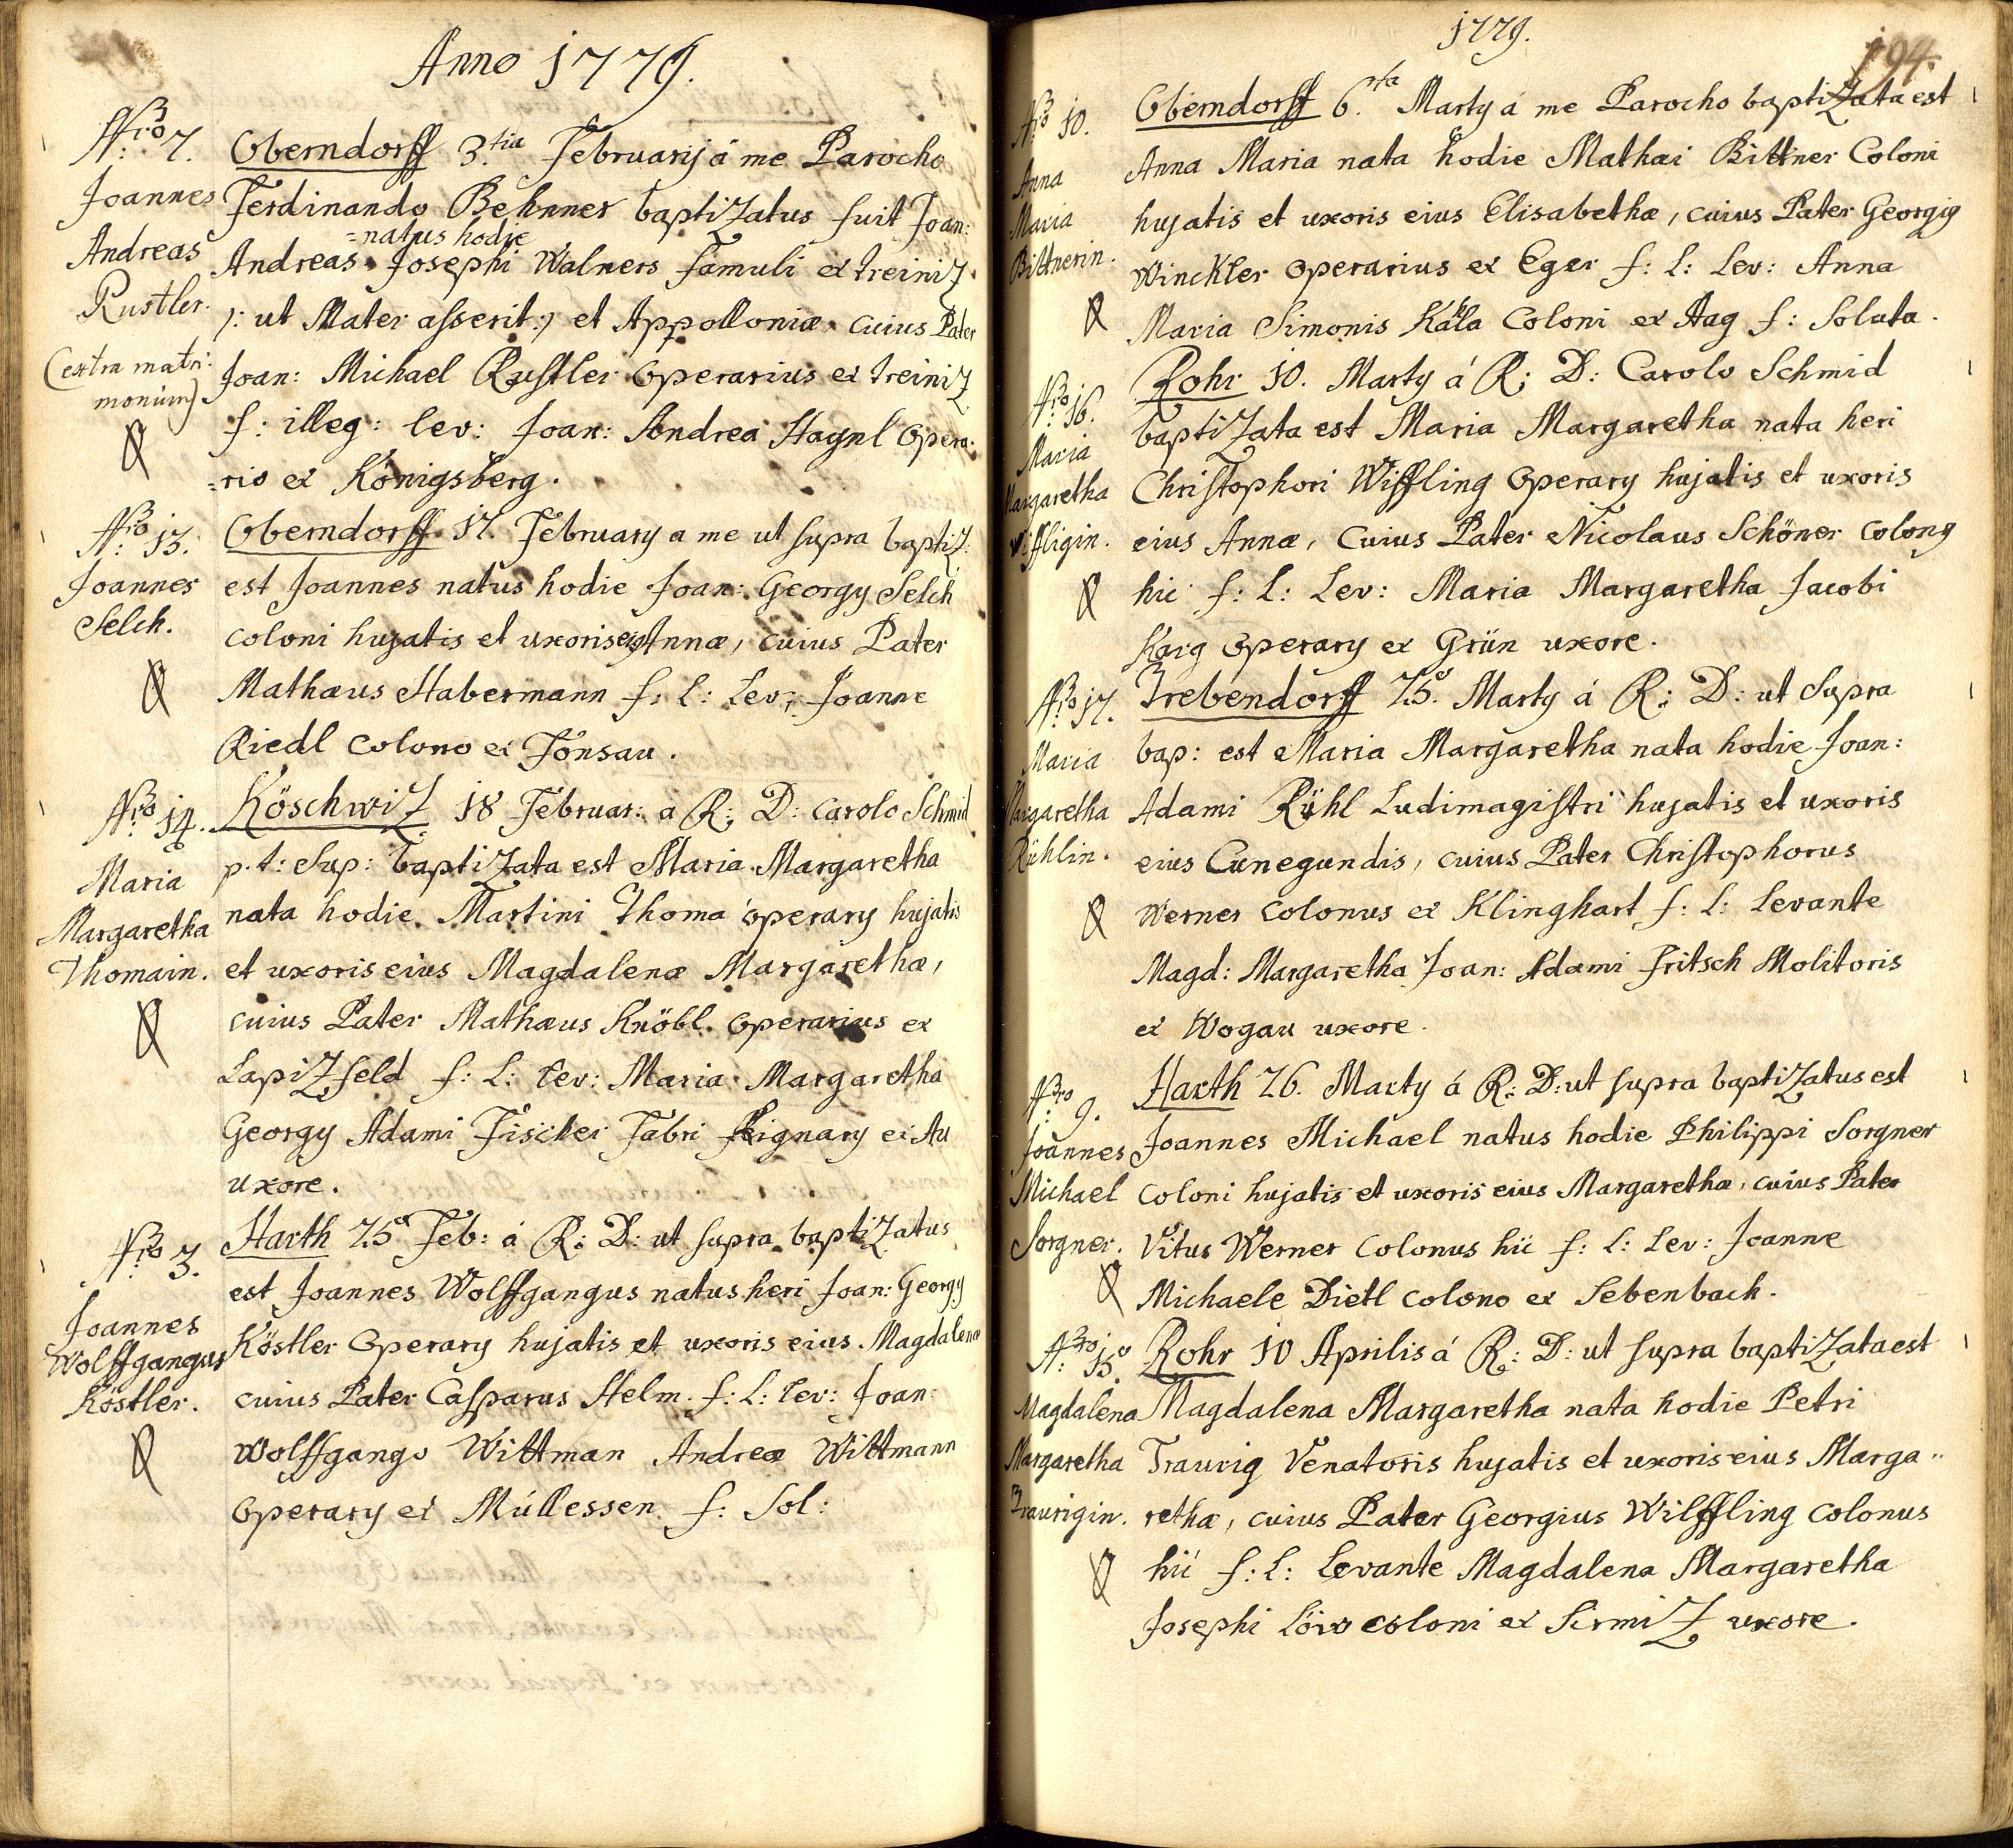 Anno 1779.
Nro 7. Oberndorff 3.tia Februarij á me Parocho
Joannes Ferdinando Behnner baptiZatus fuit Joan:
=natus hodie
Andreas Andreas Josephi Walners famuli ex treiniZ
Rustler. /: ut Mater asserit :/ et Appolloniæ cuius Pater
(extra matri: Joan: Michael Rustler Operarius ex treiniZ
monium) f: illeg: lev: Joan: Andrea Haynl Opera:
=rio ex Königsberg.
Nro 13. Oberndorff 17. February a me ut supra baptiZ:
Joannes est Joannes natus hodie Joan: Georgy Selch
Selch. coloni hujatis et uxoris eius Annæ, cuius Pater
Mathæus Habermann f: l: Lev: Joanne
Riedl colono ex Tönsau.
Nro 14. KöschwiZ 18 Februar: a R: D: Carolo Schmid
p.t: Sup: baptiZata est Maria Margaretha
Maria nata hodie Martini Thoma operary hujatis
Margaretha
Thomain. et uxoris eius Magdalenæ Margarethæ,
cuius Pater Mathæus Knöbl. Operarius ex
LapiZfeld f: L: lev: Maria Margaretha
Georgy Adami Fischer Fabri lignary ex Au
uxore.
Nro 3. Harth 25. Feb: á R: D: ut supra baptiZatus
est Joannes Wolffgangus natus heri Joan: Georgy
Joannes
Wolffgangus Köstler Operary hujatis et uxoris eius Magdalenæ
Köstler. cuius Pater Casparus Helm. f: L: lev: Joan:
Wolffgango Wittman Andreæ Wittmann
Operary ex Müllessen f: Sol:
1779.
194.
Nro 10. Oberndorff 6.ta Marty á me Parocho baptiZata est
Anna Anna Maria nata hodie Mathæi Bittner Coloni
Maria hujatis et uxoris eius Elisabethæ, cuius Pater Georgig
Bittnerin. Winckler Operarius ex Eger f: l: Lev: Anna
Maria Simonis Kahla Coloni ex Hag f: Soluta.
Nro 16. Rohr 10. Marty á R: D: Carolo Schmid
Maria baptiZata est Maria Margaretha nata heri
Margaretha Christophori Wiffling Operary hujatis et uxoris
Wiffligin. eius Annæ, Cuius Pater Nicolaus Schöner colong
hic f: L: Lev: Maria Margaretha Jacobi
Karg Operary ex Grün uxore.
Nro 17. Trebendorff 25. Marty á R: D: ut Supra
Maria bap: est Maria Margaretha nata hodie Joan:
Margaretha Adami Rühl Ludimagistri hujatis et uxoris
Rühlin. eius Cunegundis, cuius Pater Christophorus
Werner Colonus ex Klinghart f: L: Levante
Magd: Margaretha Joan: Adami Fritsch Molitoris
ex Wogau uxore.
Nro 9. Harth 26. Marty á R: D: ut supra baptiZatus est
Joannes Joannes Michael natus hodie Philippi Sorgner
Michael Coloni hujatis et uxoris eius Margarethæ, cuius Pater
Sorgner. Vitus Werner Colonus hic f: L: Lev: Joanne
Michaele Dietl colono ex Sebenbach.
Nro 15. Rohr 10 Aprilis á R: D: ut supra baptiZata est
Magdalena Magdalena Margaretha nata hodie Petri
Margaretha Traurig Venatoris hujatis et uxoris eius Marga"
Traurigin. rethæ, cuius Pater Georgius Wilffling Colonus
hic f: L: Levante Magdalena Margaretha
Josephi Löw coloni ex SirmiZ uxore.